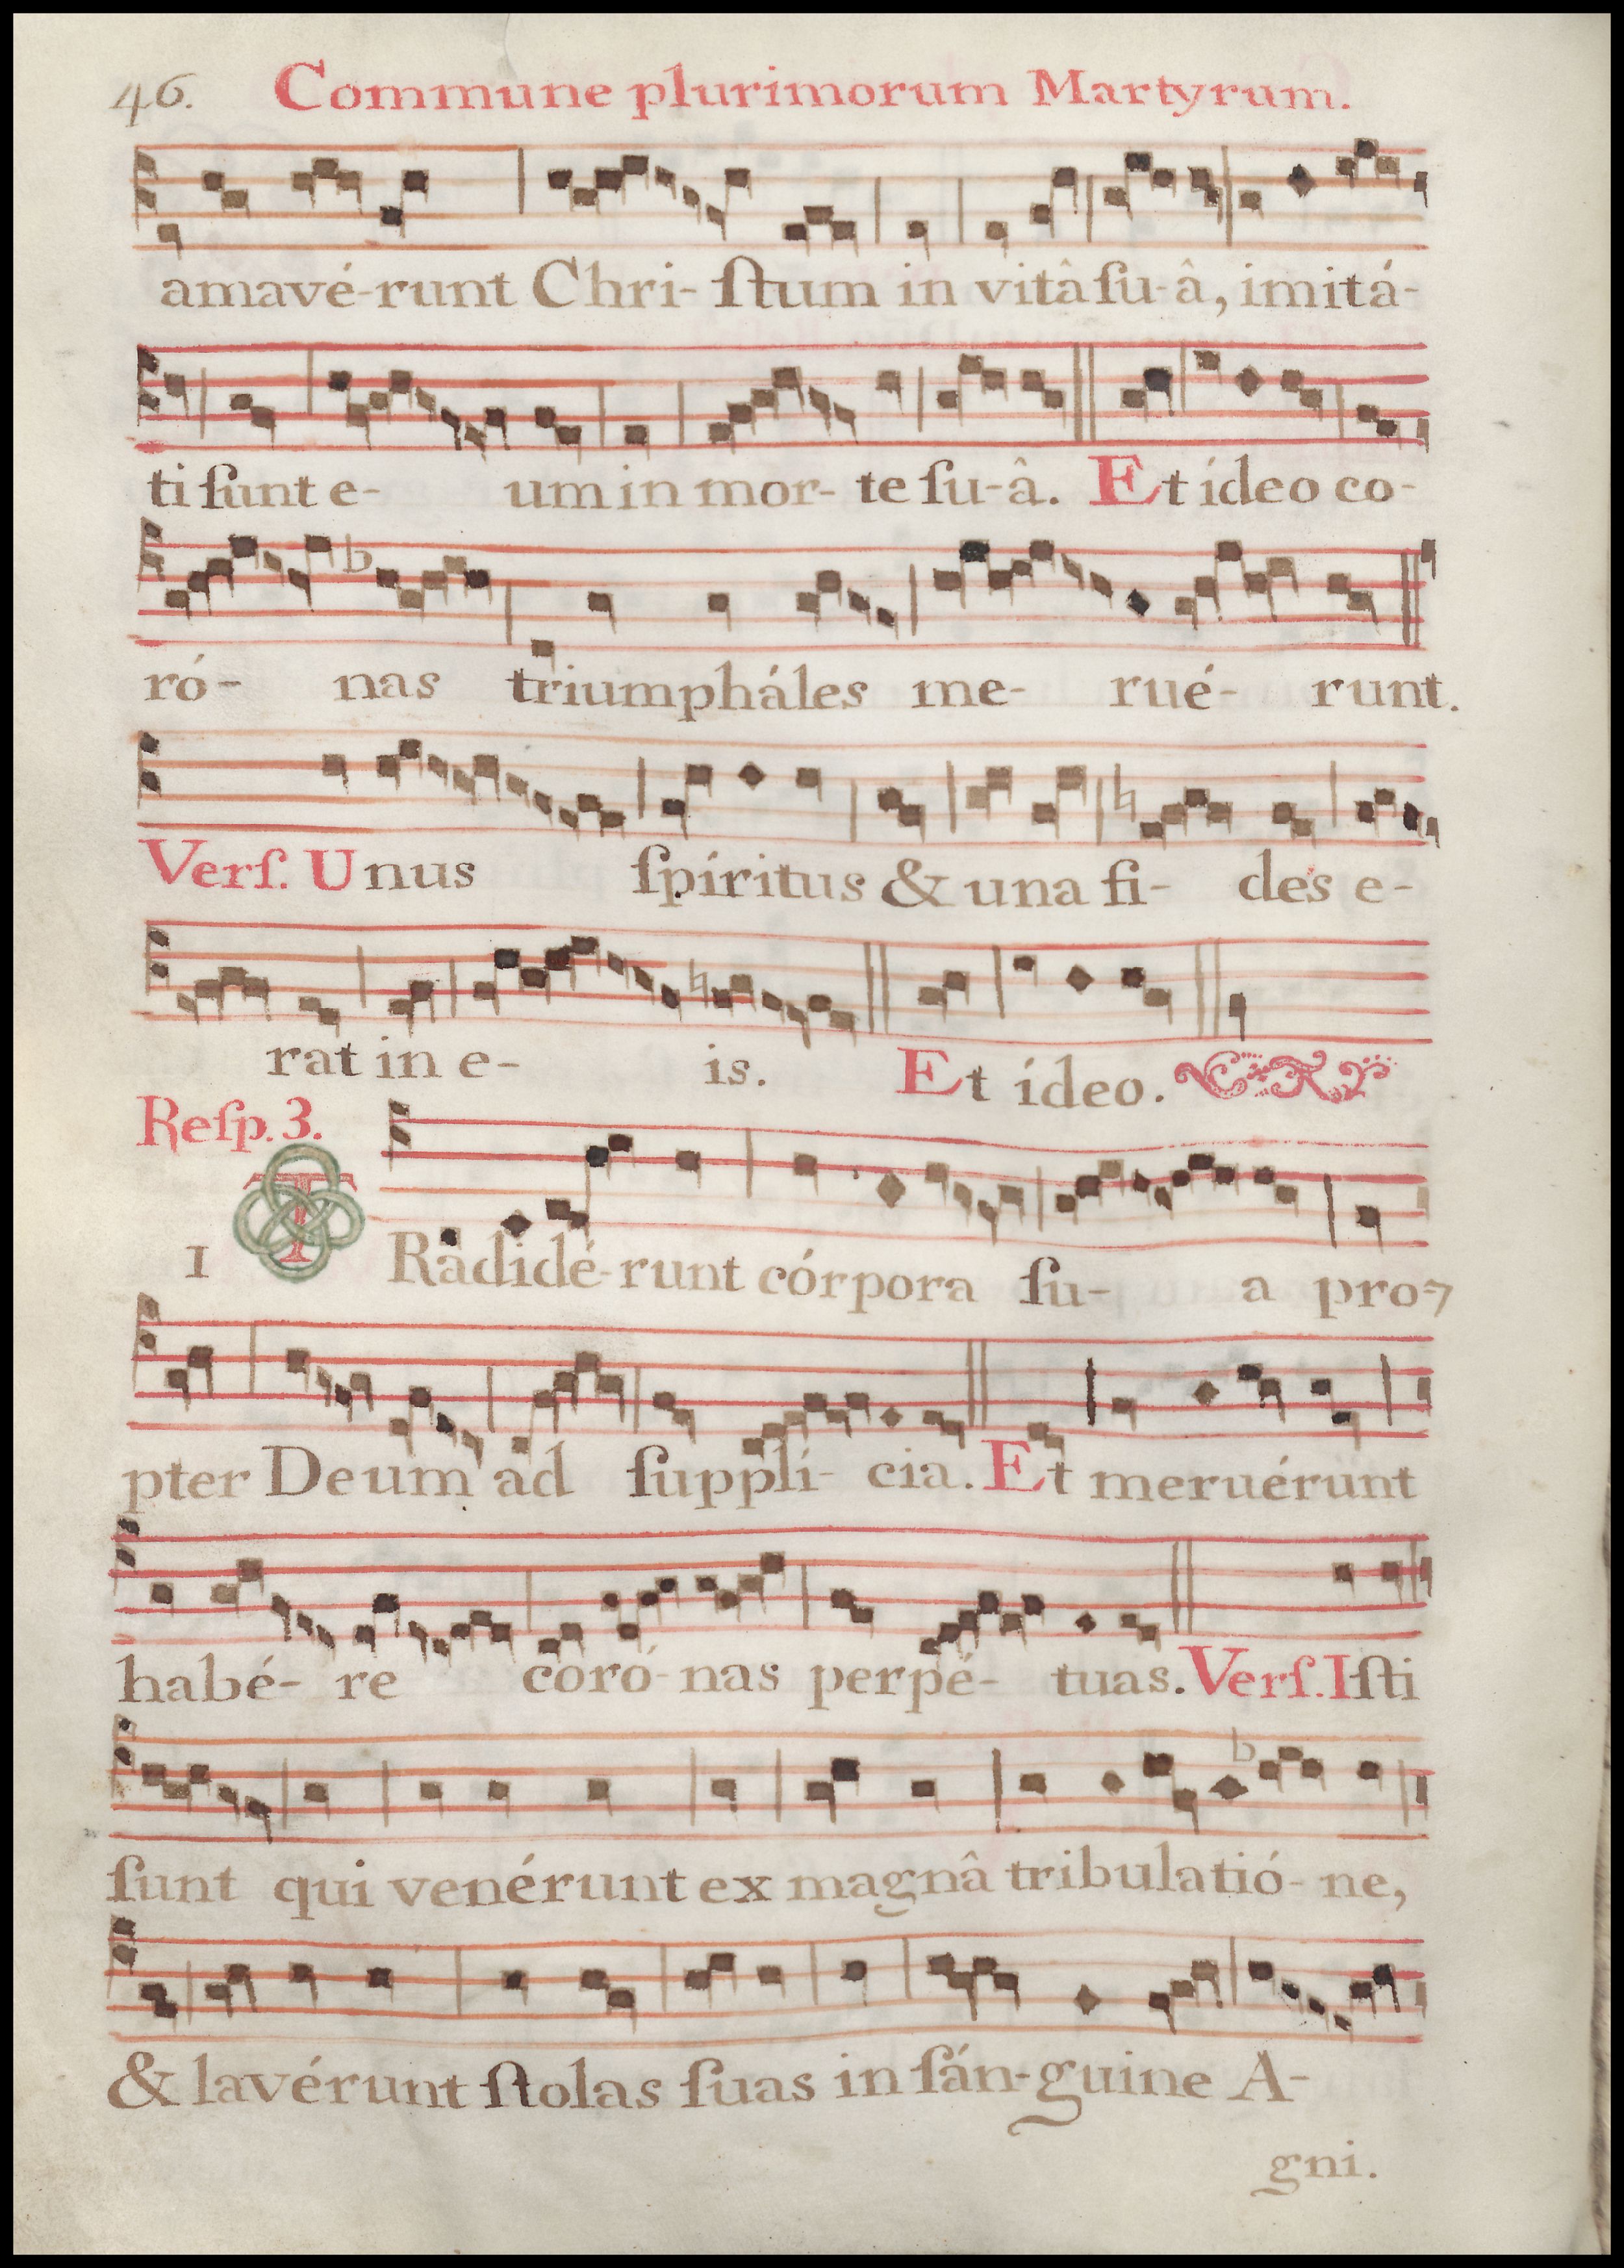 46. Commune plurimorum Martyrum.
amavé-runt Chri-ſtum in vitâ ſu-â, imitá-
ti ſunt e- um in mor- te ſu-â. Et ídeo co-
ró- nas triumpháles me- rué- runt.
Verſ. Unus ſpíritus & una fi- des e-
rat in e- is. Et ídeo.
Reſp. 3.
1 TRadidé-runt córpora ſu- a pro-
pter Deum ad ſupplí- cia. Et meruérunt
habé- re coró-nas perpé- tuas. Verſ. Iſti
ſunt qui venérunt ex magnâ tribulatió- ne,
& lavérunt ſtolas ſuas in ſán-guine A-
gni.